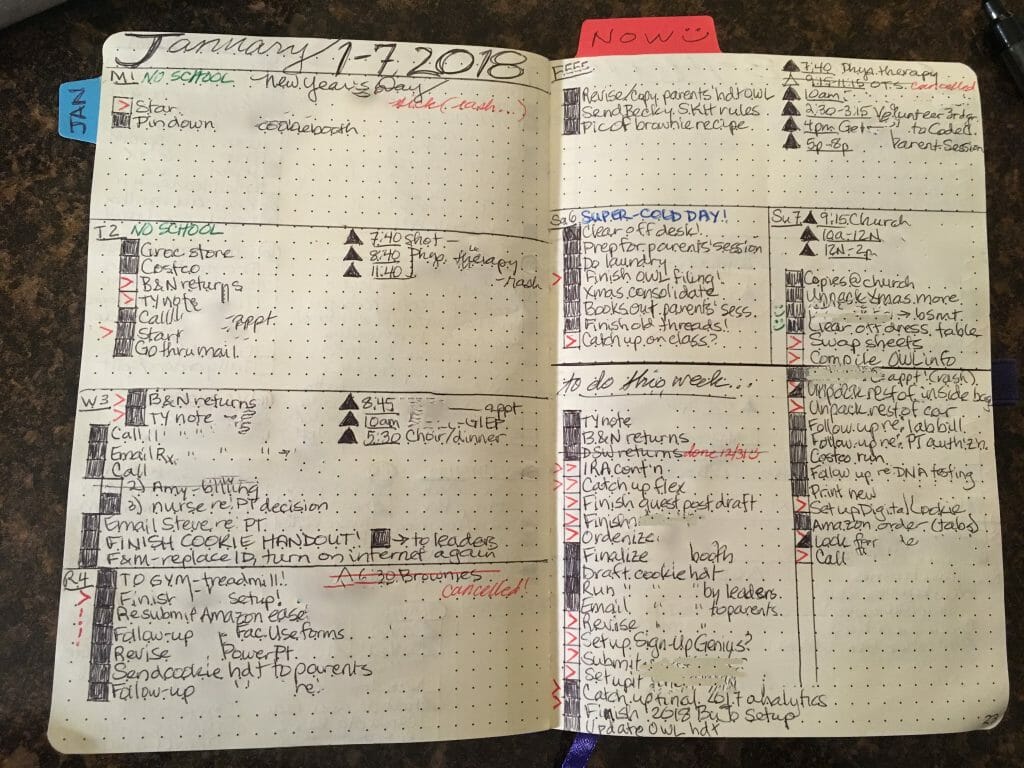 January 1-7 2018
NOW
JAN
M1 NO SCHOOL New Year's Day
Star
Pin down cookie booth
T2 NO SCHOOL
Groc store
Costco
B&N returns
TY note
Call appt.
Start
Go thru mail
7:40 Shot
8:40 Phys. therapy
11:40
W3 B&N returns
TY note
Call " "
Email Rx " "
Call
2) Amy - billing
3) nurse re: PT decision
Email Steve re: PT
FINISH COOKIE HANDOUT! → to leaders
Exm-replace ID, turn on internet again
8:45 appt.
10am IEP
5:30 Choir/dinner
R4 TO GYM-treadmill!
Finish setup!
Resubmit Amazon case
Follow-up Fac. Use forms.
Revise PowerPt.
Send cookie hdt to parents
Follow-up " re:
6:30 Brownies
cancelled!
Revise/copy parents' hdt OWL
Send Becky S. Kit rules
Pic of brownie recipe
7:40 Phys. therapy
9:15-11:15 O.T.S. cancelled
10am
2:30-3:15 Volunteer 3rd gr.
4pm Get to Coded
5p-8p Parent Session
Sa6 SUPER-COLD DAY!
Clear off desk!
Prep for parents' session
Do laundry
Finish OWL filing!
Xmas consolidate
Books out parents' sess.
Finish old threads!
Catch up on class?
Su7 9:15 Church
10a-12N
12N-2p
Copies @ church
Unpack Xmas more
→ bsmt.
Clear off dress. table
Swap sheets
Compile OWL info
to do this week...
TY note
B&N returns
DSW returns done 12/31
IRA cont'n
Catch up flex
Finish guest post draft
Finish
Ordenize
Finalize booth
Draft cookie hdt
Run " " by leaders.
Email " " to parents.
Revise
Setup Sign-Up Genius?
Submit
Set up it
Catch up final 2017 analytics
Finish 2018 BuJo setup
Update OWL hdt
appt (rash)
Unpack rest of inside bag
Unpack rest of car
Follow up re: lab bill.
Follow-up re: PT authizn.
Costco run
Follow up re DNA testing
Print new
Set up Digital Cookie
Amazon order (tabs)
Look for
Call